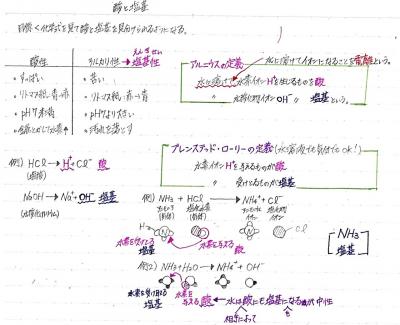 酸と塩基
目標<化学式を見て酸と塩基を見分けられるようになる。
酸性
アルカリ性→塩基性
えんきせい
・すっぱい
・苦い
・リトマス紙…青→赤
・リトマス紙…赤→青
・pH7未満
・pH7より大きい
・金属をとかして水素↑
・汚れを落とす
アレニウスの定義
水に溶けてイオンになることを電離という。
水に溶けて水素イオンH⁺を生じるものを酸
〃 水酸化物イオンOH⁻ 〃 塩基という。
例) HCl → H⁺ + Cl⁻ 酸
(塩酸)
NaOH → Na⁺ + OH⁻ 塩基
(水酸化ナトリウム)
ブレンステッド・ローリーの定義(水溶液でも気体でもOK!)
水素イオンH⁺を与えるものが酸
〃 受けとるものが塩基
例) NH₃ + HCl → NH₄⁺ + Cl⁻
アンモニア(気体)
塩化水素(気体)
アンモニウムイオン
塩化物イオン
H
N
N
Cl
水素を受けとる
塩基
水素を与える
酸
NH₃
塩基
例2) NH₃ + H₂O → NH₄⁺ + OH⁻
水素を受け取る
塩基
水素を与える酸
← 水は酸にも塩基になるが中性
相手によって